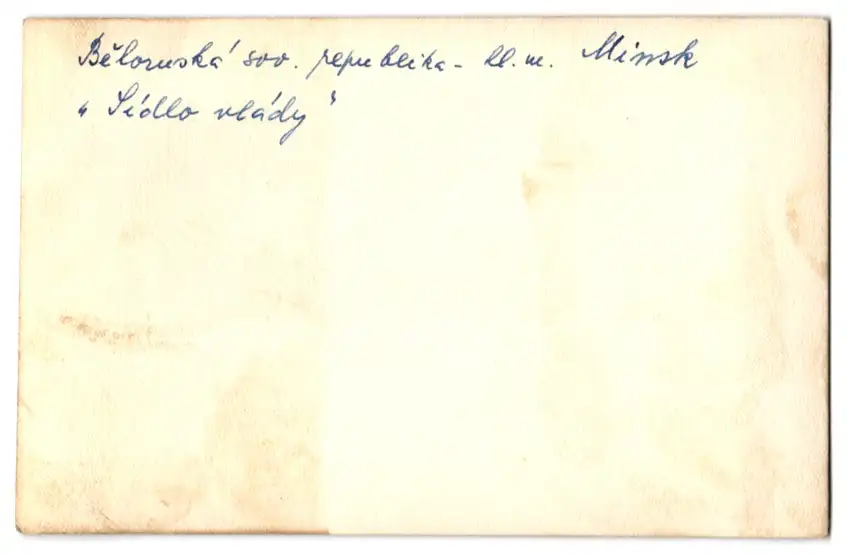 Běloruská sov. republika - hl. m. Minsk
„Sídlo vlády“